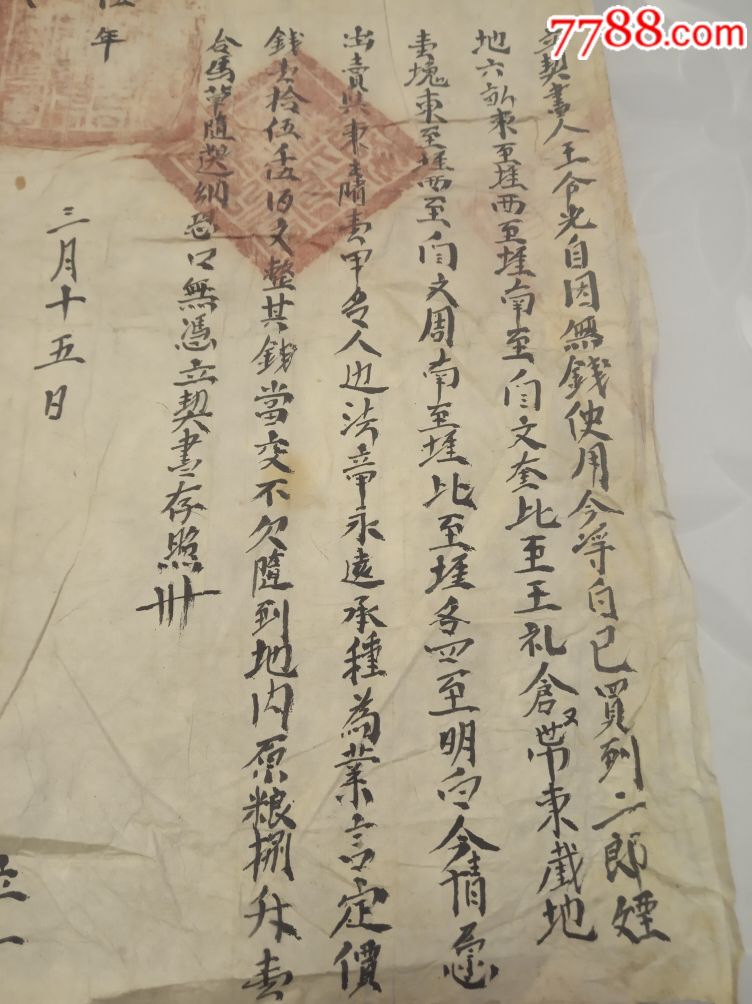 7788.com
契書人王令光自因無錢使用今将自己買到二郎
地六畝東至堐西至堐南至自文奎比至王礼倉又帶東截地
壹塊東至堐西至自文周南至堐比至堐各四至明白今情愿
出賣與東睛壹甲各人边法章永遠承種為業言定價
錢壹拾伍千伍百文整其錢當交不欠隨到地内原粮捌升壹
合馬草隨過納恐口無憑立契書存照
三月十五日
伍年